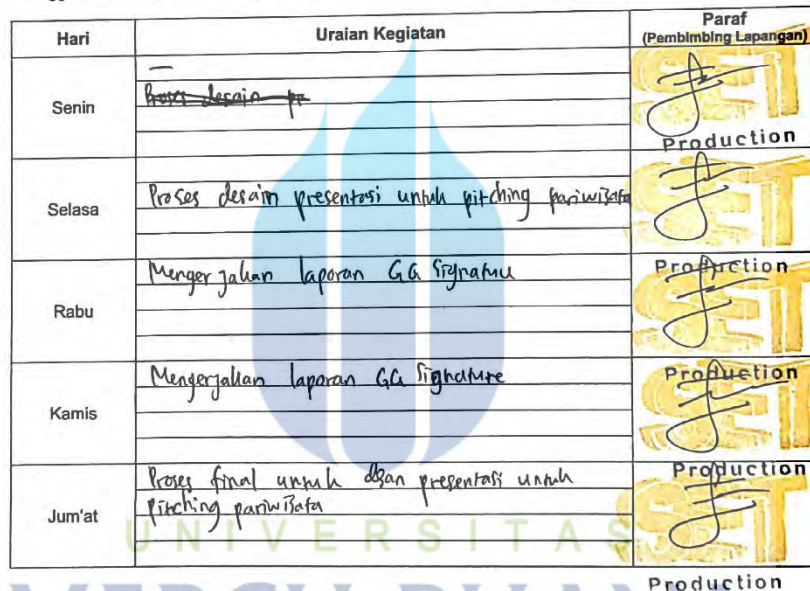 Hari Uraian Kegiatan Paraf
(Pembimbing Lapangan)
Senin
—
Proses desain pr
SET
Production
Selasa
Proses desain presentasi untuk pitching pariwisata
SET
Production
Rabu
Mengerjakan laporan GG Signature
SET
Production
Kamis
Mengerjakan laporan GG Signature
SET
Production
Jum'at
Proses final untuk desan presentasi untuk
pitching pariwisata
SET
Production
UNIVERSITAS